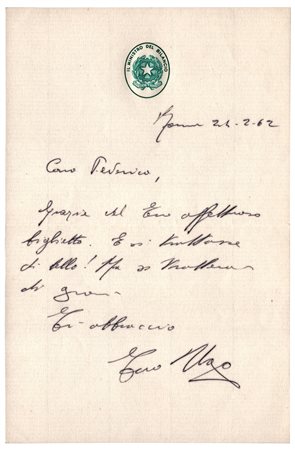 IL MINISTRO DEL BILANCIO
Roma 21-2-62
Caro Federico,
Grazie del Tuo affettuoso
biglietto. E si trattasse
di bello! Ma si tratta
di
Ti abbraccio
Tuo Ugo